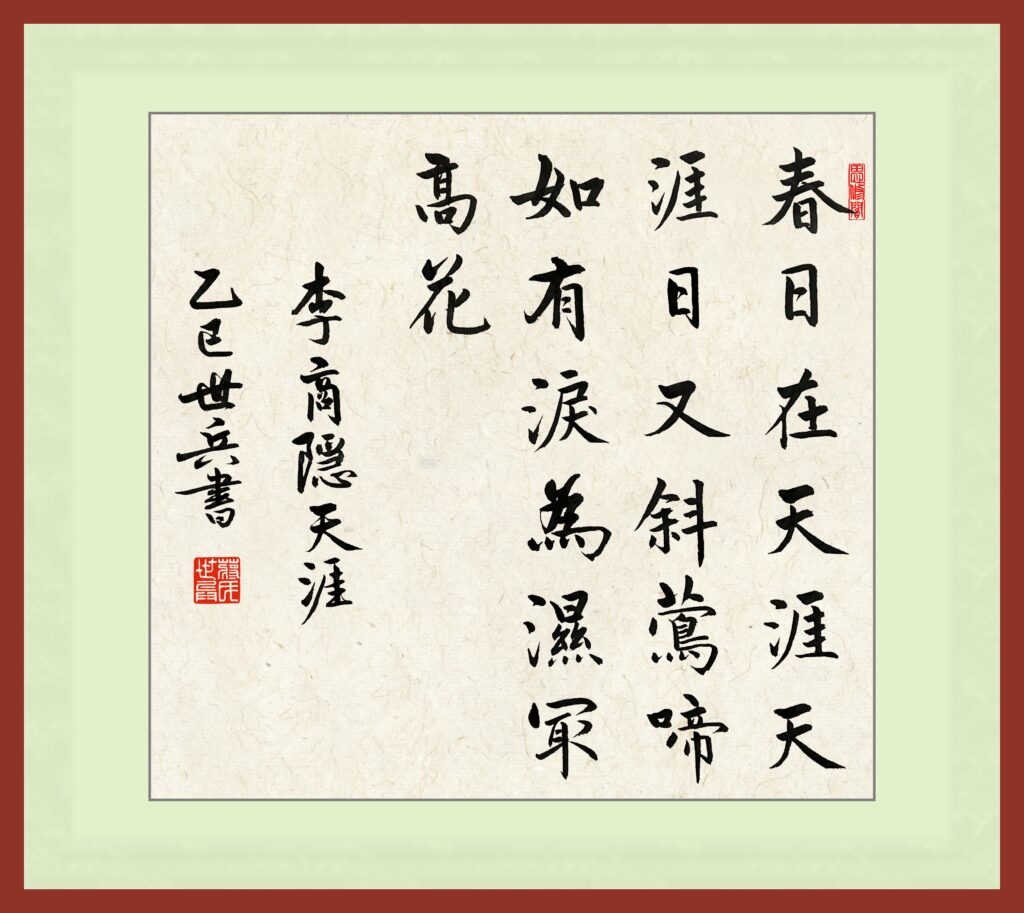 春日在天涯天
涯日又斜鶯啼
如有淚為濕冣
高花
李商隐天涯
乙巳世兵書